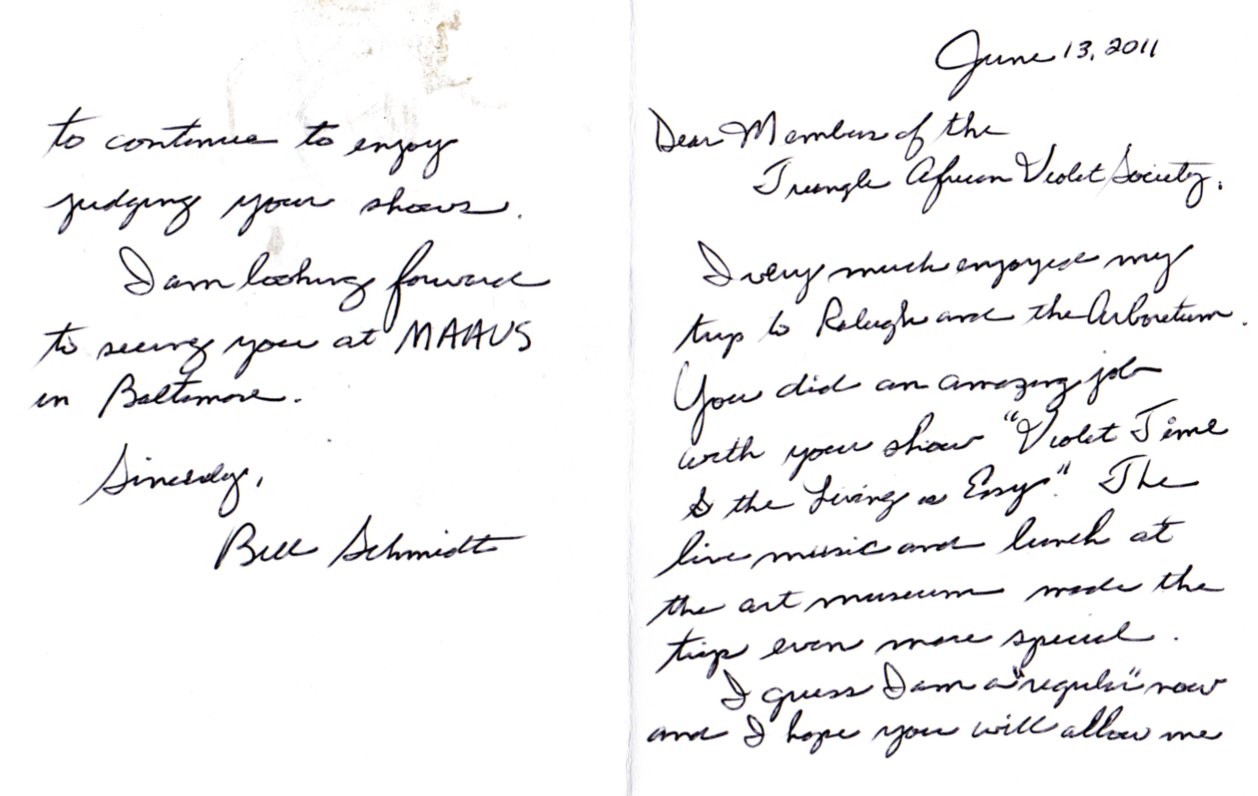 June 13, 2011
Dear Members of the
Triangle African Violet Society,
I very much enjoyed my
trip to Raleigh and the Arboretum.
You did an amazing job
with your show "Violet Time
& the Living is Easy". The
live music and lunch at
the art museum made the
trip even more special.
I guess I am a "regular" now
and I hope you will allow me
to continue to enjoy
judging your shows.
I am looking forward
to seeing you at MAAVS
in Baltimore.
Sincerely,
Bill Schmidt